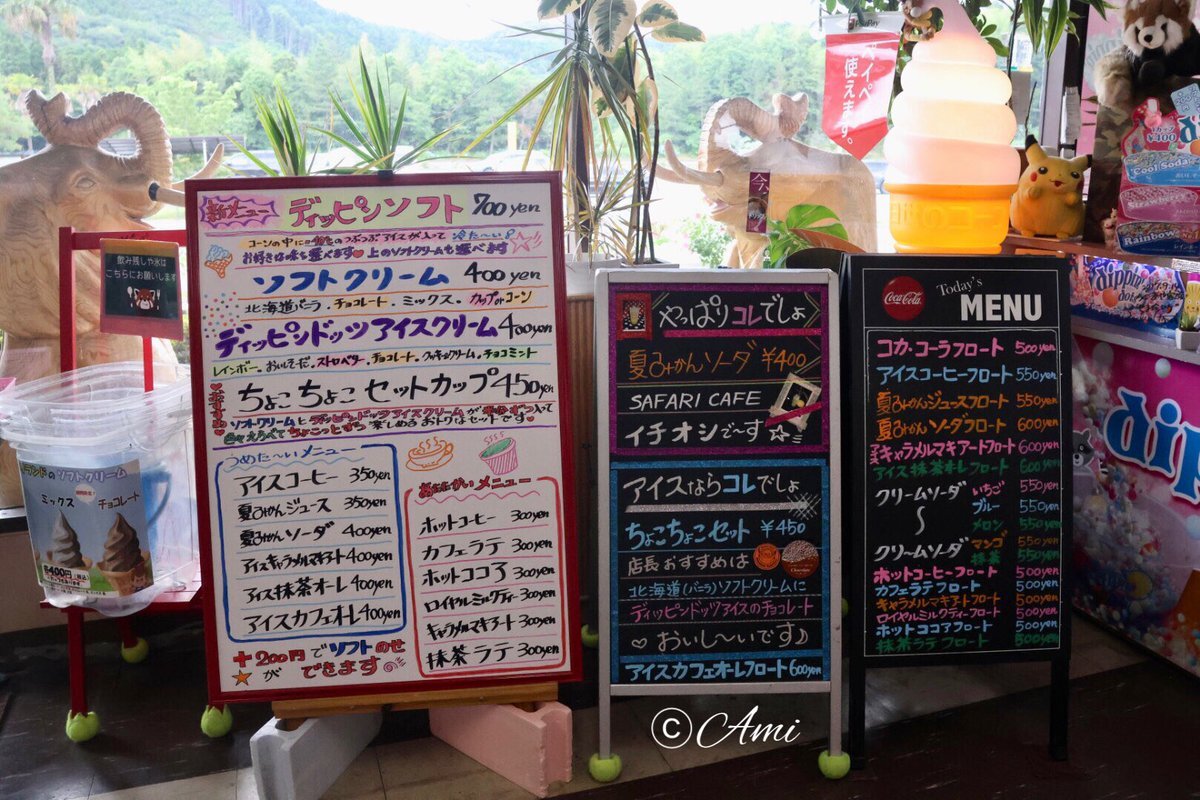 新メニュー ディッピンソフト 700yen
コーンの中に つぶつぶアイスが入って 冷た〜い
お好きな味を選べます 上のソフトクリームも選べます
ソフトクリーム 400yen
北海道バニラ・チョコレート・ミックス・カップorコーン
ディッピンドッツアイスクリーム 400yen
レインボー。おいしそーだ。ストロベリー。チョコレート。クッキー&クリーム。チョコミント
ちょこちょこセットカップ 450yen
ソフトクリームとディッピンドッツアイスクリームが半分ずつ入って
色々えらべて ちょこっとずつ楽しめるおトクなセットです。
つめた〜いメニュー
アイスコーヒー 350yen
夏みかんジュース 350yen
夏みかんソーダ 400yen
アイスキャラメルマキアート 400yen
アイス抹茶オーレ 400yen
アイスカフェオレ 400yen
+200円でソフトのせ
ができます
あたたかいメニュー
ホットコーヒー 300yen
カフェラテ 300yen
ホットココア 300yen
ロイヤルミルクティー 300yen
キャラメルマキアート 300yen
抹茶ラテ 300yen
やっぱりコレでしょ
夏みかんソーダ ¥400
SAFARI CAFE
イチオシで〜す
アイスならコレでしょ
ちょこちょこセット ¥450
店長おすすめは
北海道(バニラ)ソフトクリームに
ディッピンドッツアイスのチョコレート
おいし〜いです♪
アイスカフェオーレフロート 600yen
Coca-Cola
Today's
MENU
コカ・コーラフロート 500yen
アイスコーヒーフロート 550yen
夏みかんジュースフロート 550yen
夏みかんソーダフロート 600yen
アイスキャラメルマキアートフロート 600yen
アイス抹茶オーレフロート 600yen
クリームソーダ いちご 550yen
〜 ブルー 550yen
メロン 550yen
クリームソーダ マンゴ 550yen
抹茶 550yen
ホットコーヒーフロート 500yen
カフェラテフロート 500yen
キャラメルマキアートフロート 500yen
ロイヤルミルクティーフロート 500yen
ホットココアフロート 500yen
抹茶ラテフロート 500yen
飲み残しや氷は
こちらにお願いします
ランドのソフトクリーム
ミックス チョコレート
各400円
PayPay
ペイペイ
使えます。
今、
1カップ
¥400
Cool Soda
Strawberry
Rainbow
dippin'
dots
dipp
©Ami